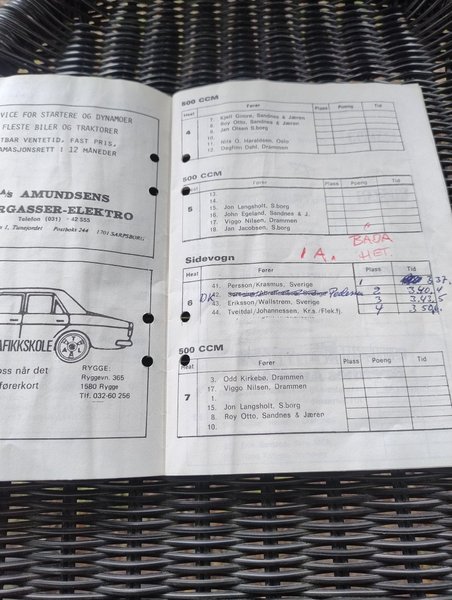 VICE FOR STARTERE OG DYNAMOER
FLESTE BILER OG TRAKTORER
TBAR VENTETID, FAST PRIS,
AMASJONSRETT I 12 MÅNEDER
AS AMUNDSENS
RGASSER-ELEKTRO
Telefon (031) - 42 555
n 1, Tunejordet Postboks 244 1701 SARPSBURG
AFIKKSKOLE
oss når det
førerkort
RYGGE:
Ryggevn. 365
1580 Rygge
Tlf. 032-60 256
500 CCM
Heat Fører Plass Poeng Tid
4
7. Kjell Gimre, Sandnes & Jæren
8. Roy Otto, Sandnes & Jæren
9. Jan Olsen S.borg
11. Nils O. Haraldsen, Oslo
12. Dagfinn Dahl, Drammen
500 CCM
Heat Fører Plass Poeng Tid
5
13.
14.
15. Jon Langsholt, S.borg
16. John Egeland, Sandnes & J.
17. Viggo Nilsen, Drammen
18. Jan Jacobsen, S.borg
1 A. BAUA
HET.
Sidevogn
Heat Fører Plass Tid
6
41. Persson/Krasmus, Sverige 1 3.37.
DK 42. 2 3.40.4
43. Eriksson/Wallstrøm, Sverige 3 3.43.5
44. Tveitdal/Johannessen, Kr.s./Flek.fj. 4
500 CCM
Heat Fører Plass Poeng Tid
7
3. Odd Kirkebø, Drammen
17. Viggo Nilsen, Drammen
15. Jon Langsholt, S.borg
8. Roy Otto, Sandnes & Jæren
10.